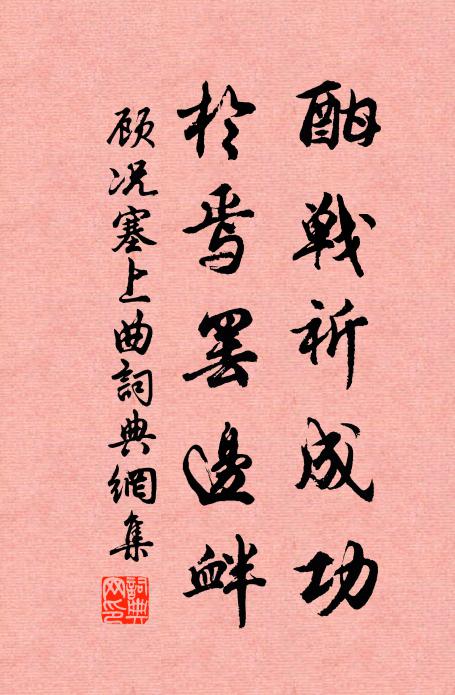 酣戦祈成功
於焉罢邊衅
顾况塞上曲詞典網集
詞典网印